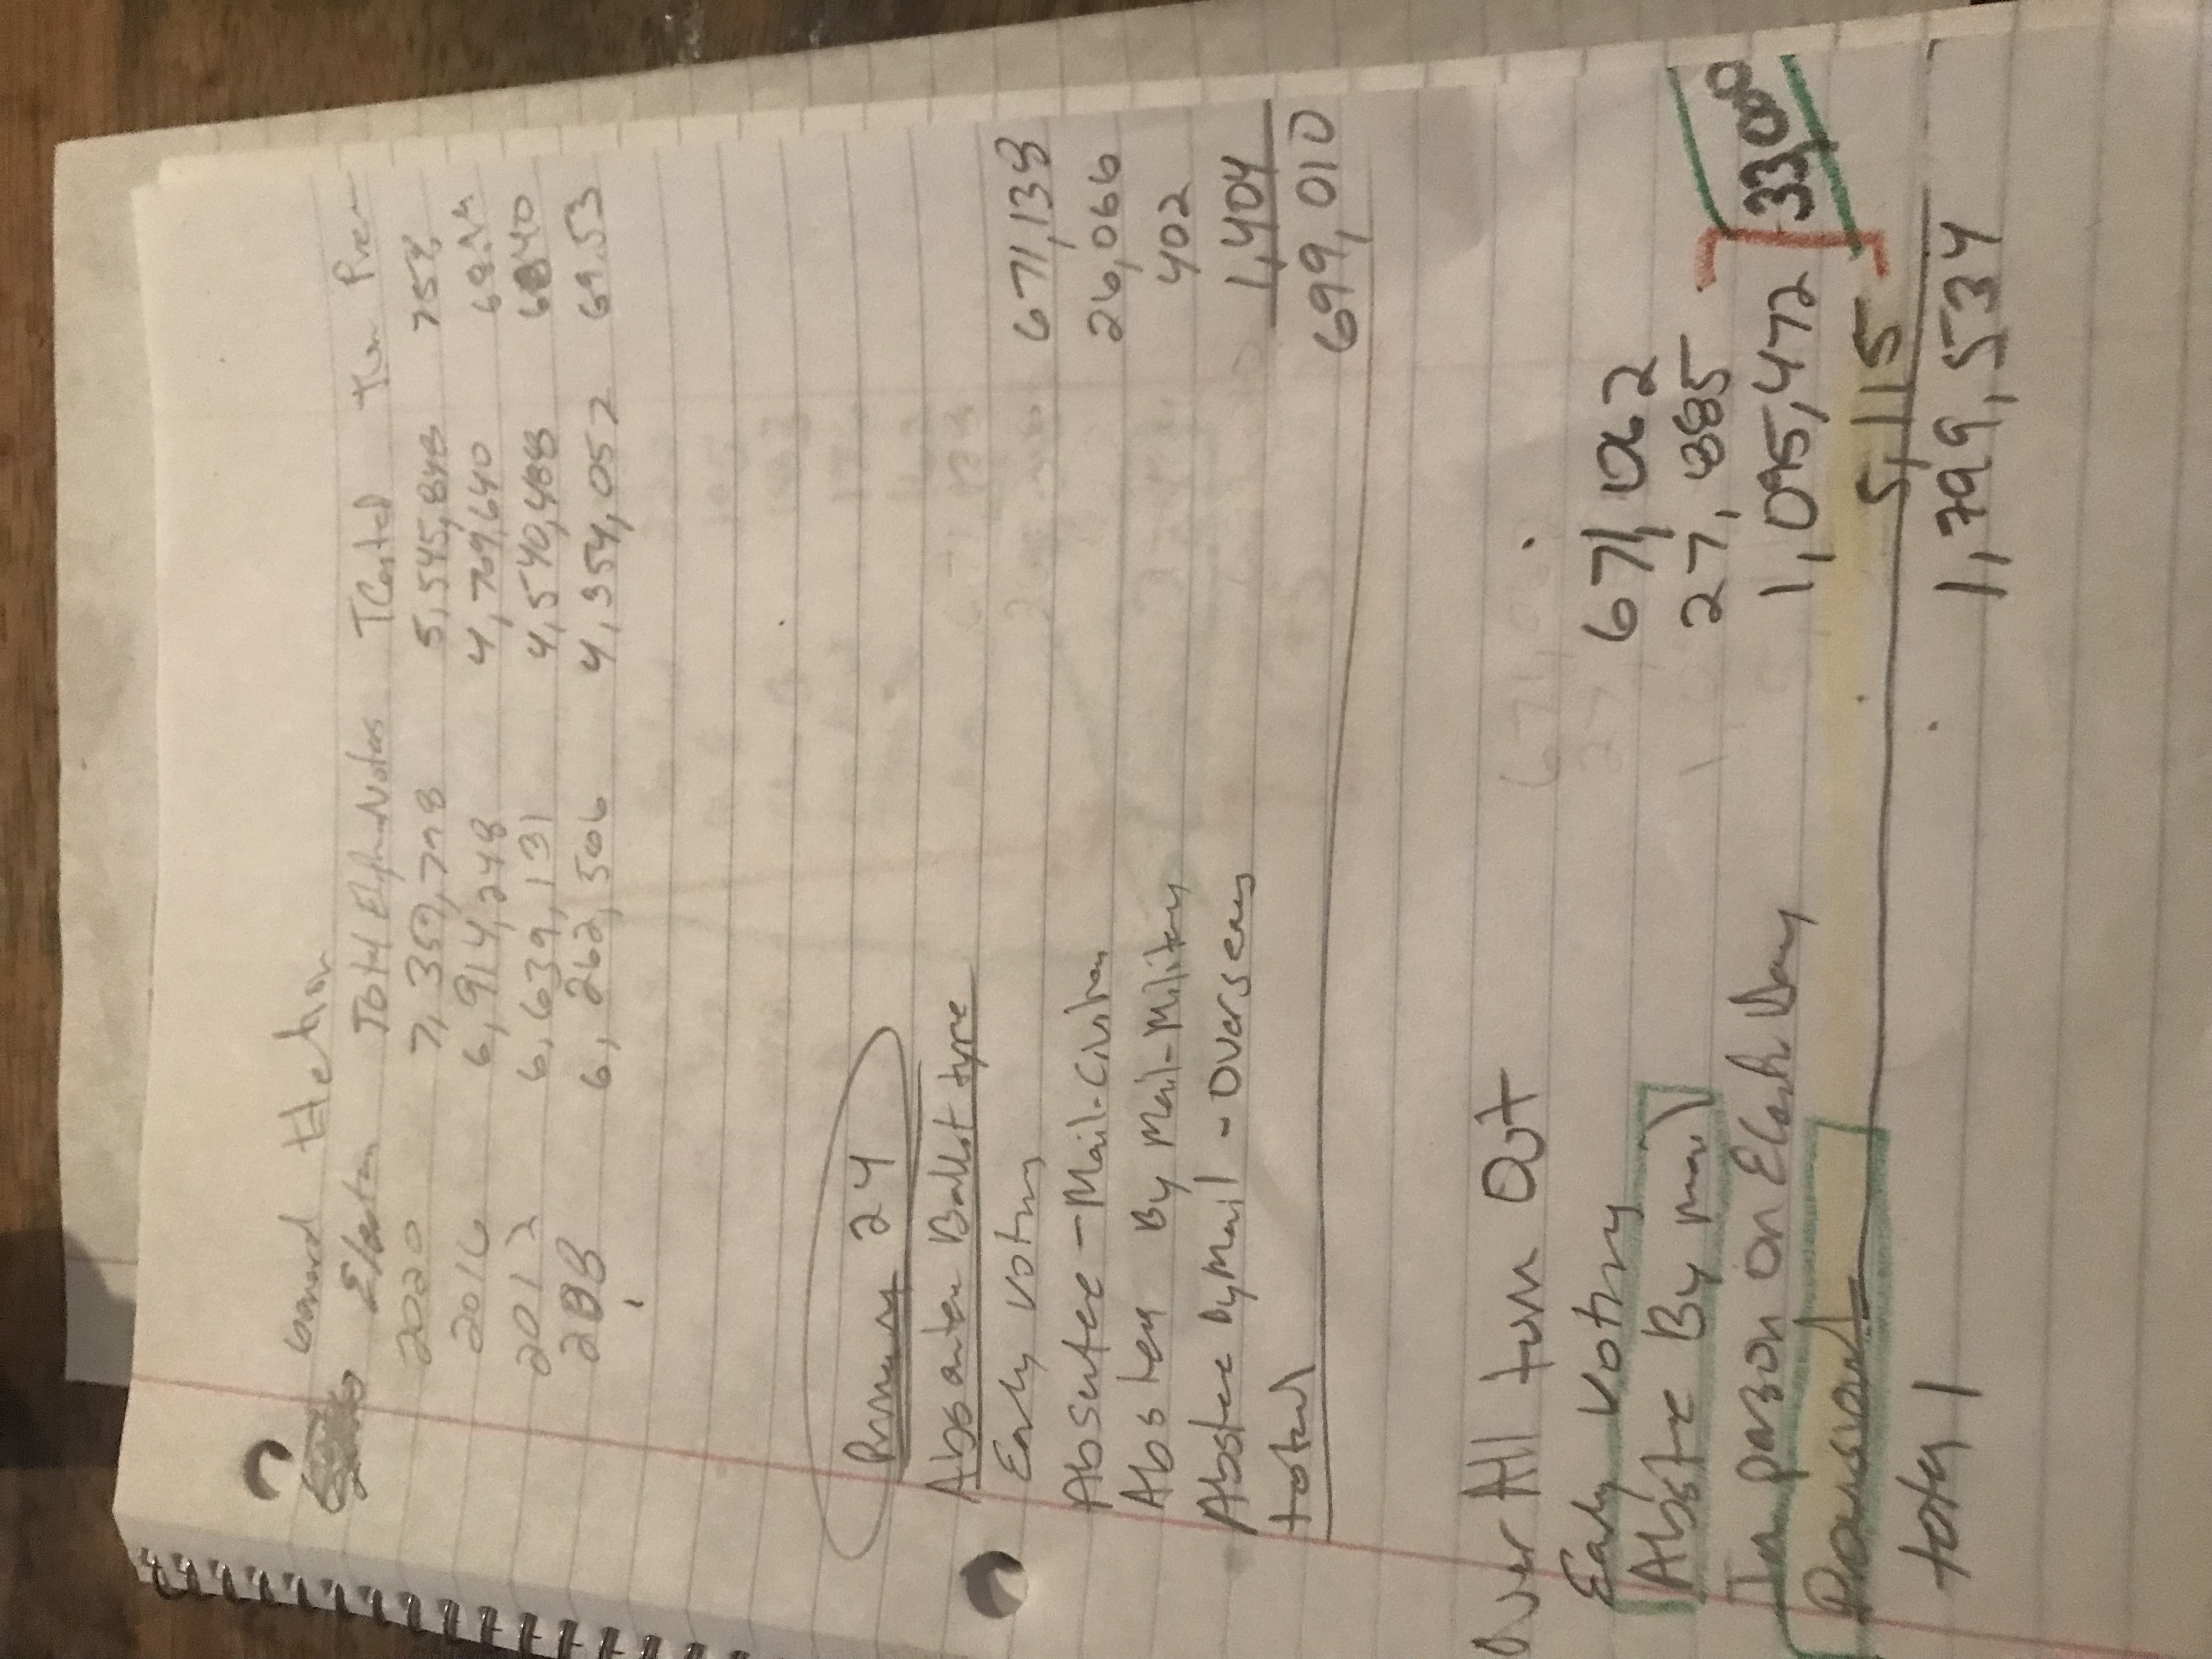 Election Total Elgh. Notes TCasted
2020 7,359,798 5,545,848 75%
2016 6,914,248 4,769,640
2012 6,639,131 4,540,488 68.40
2008 6,262,506 4,354,052 69.53
24
Ballot type
Early Voting 671,138
Absentee - Mail - Civilian 26,066
By Mail - Military 402
Absentee By Mail - Overseas 1,404
total 699,010
Over All turn Out
Early Voting 671,062
By mail 27,885
In person On Elect. Day 1,095,472 33,000
5,115
total 1,799,534